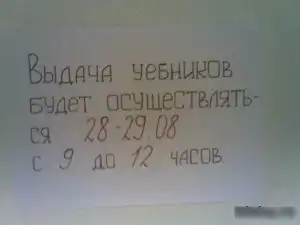 Выдача уебников
будет осуществлять-
ся 28-29.08
с 9 до 12 часов.